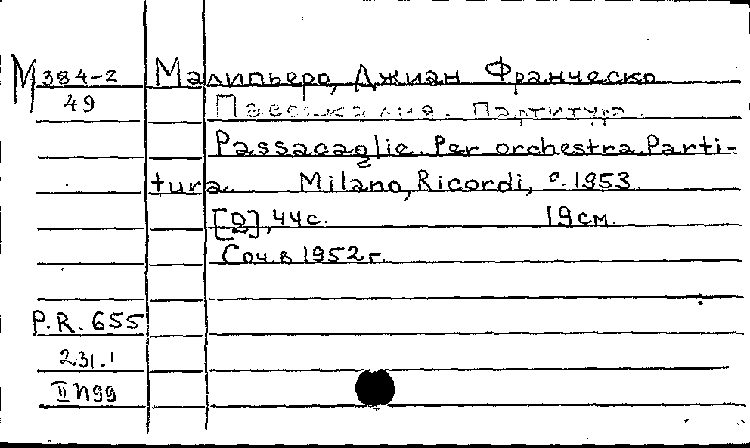 М 384-2 Малипьеро, Джиан Франческо
49 Пассакалия. Партитура.
Passacaglie. Per orchestra. Parti-
tura. Milano, Ricordi, c. 1953.
[2], 44 с. 19 см.
Соч. в 1952 г.
P.R. 655
231.1
II n99